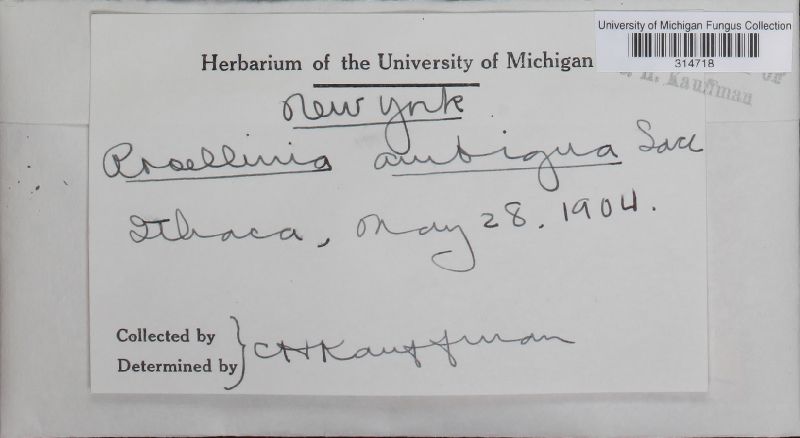 University of Michigan Fungus Collection
314718
Herbarium of the University of Michigan
Kauffman
New York
Rosellinia ambigua Sacc
Ithaca, May 28. 1904.
Collected by
Determined by
CHKauffman